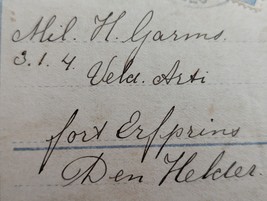 Mil. H. Garms.
3.1.4. Veld. Arti
fort Erfprins
Den Helder.